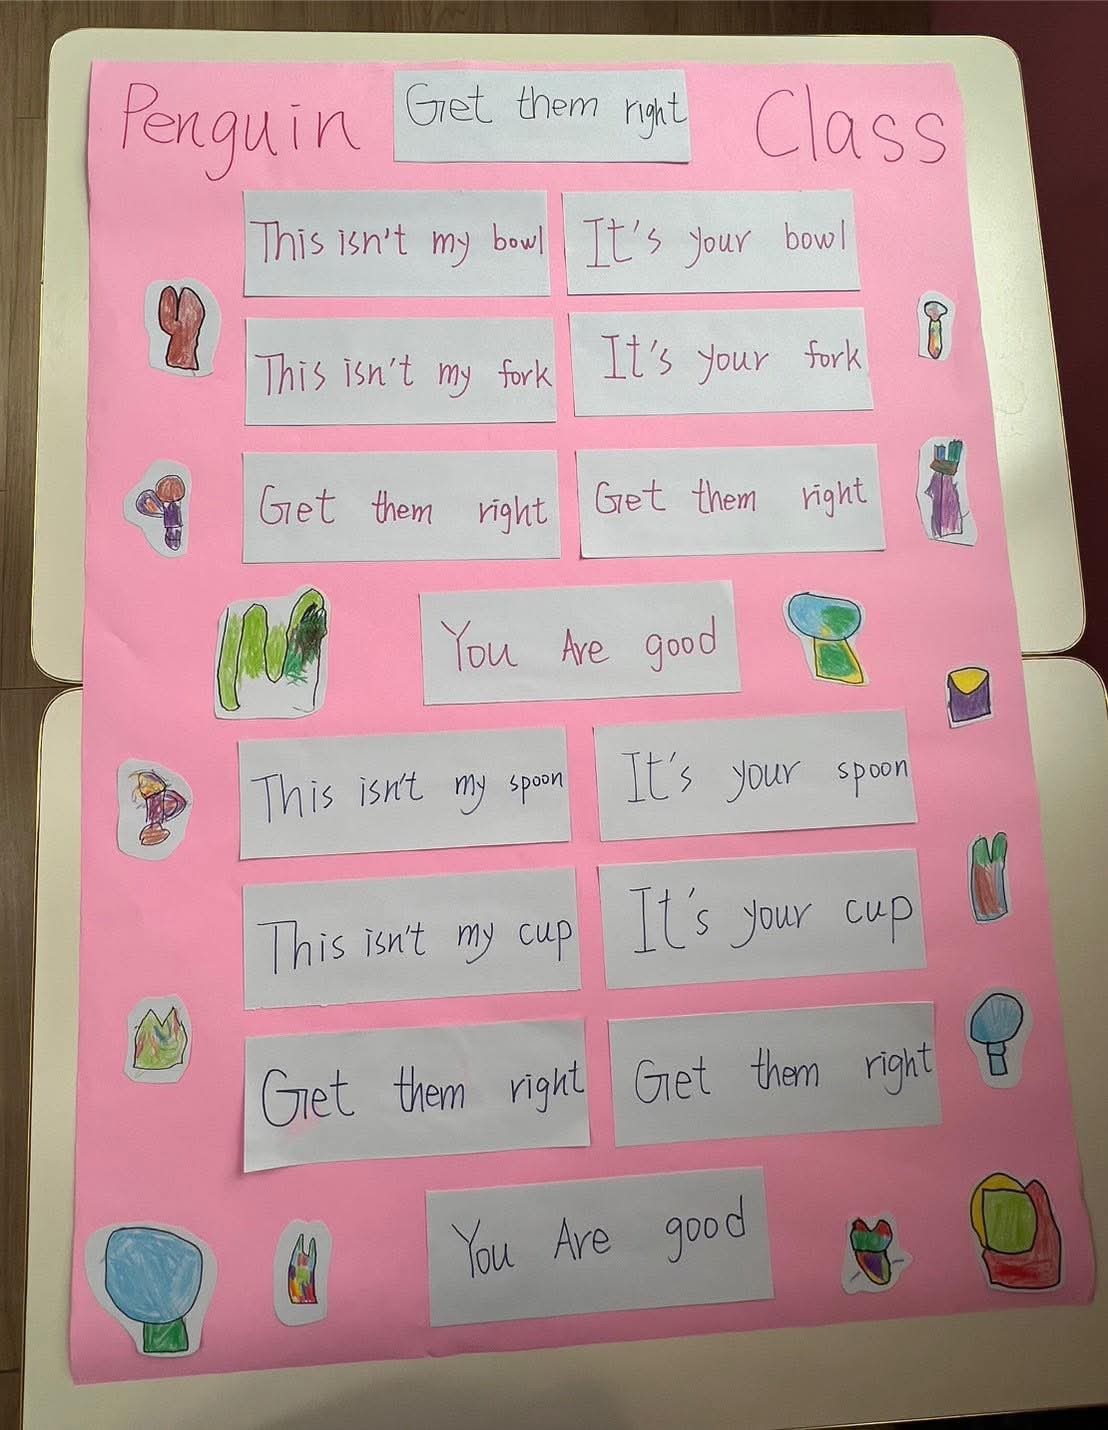 Penguin Get them right Class
This isn't my bowl It's your bowl
This isn't my fork It's your fork
Get them right Get them right
You Are good
This isn't my spoon It's your spoon
This isn't my cup It's your cup
Get them right Get them right
You Are good